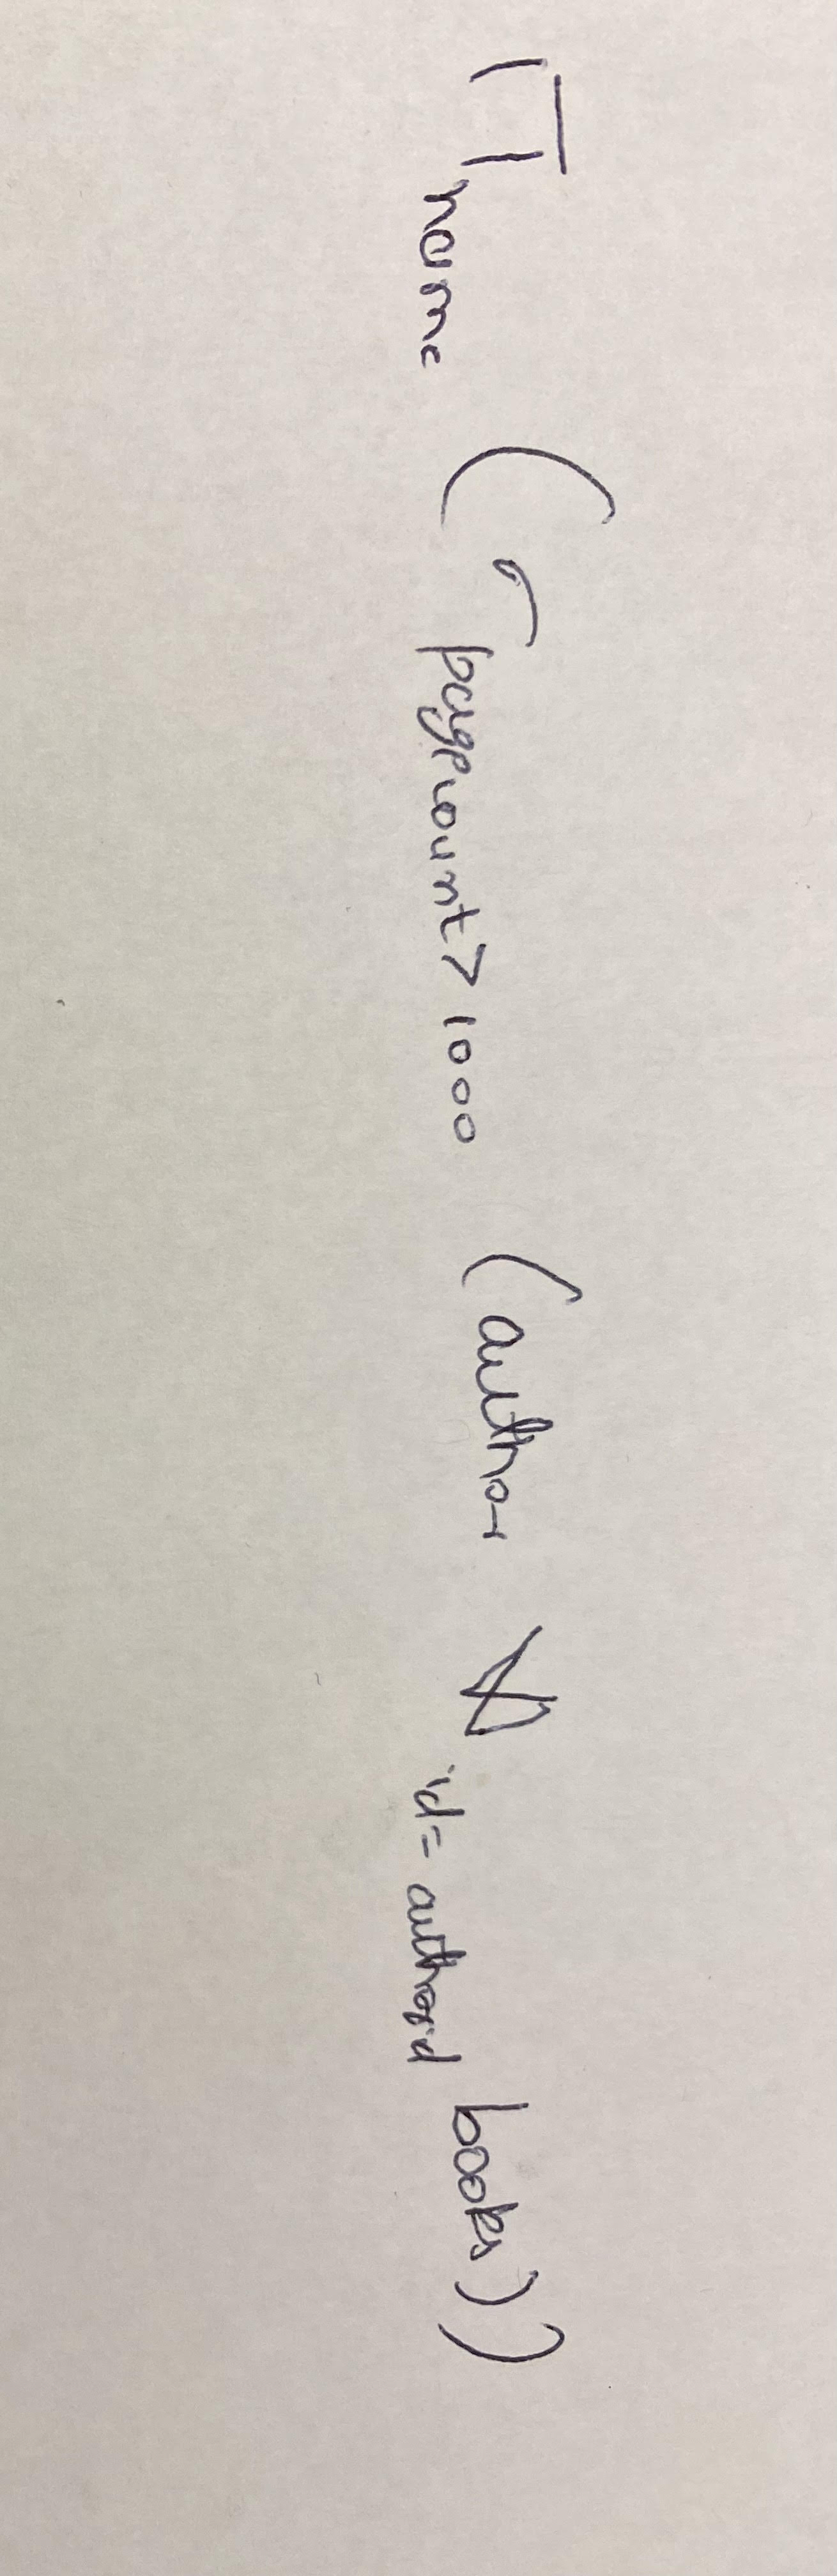 Π name ( σ pagecount > 1000 (author ⋈ id = authorid books))